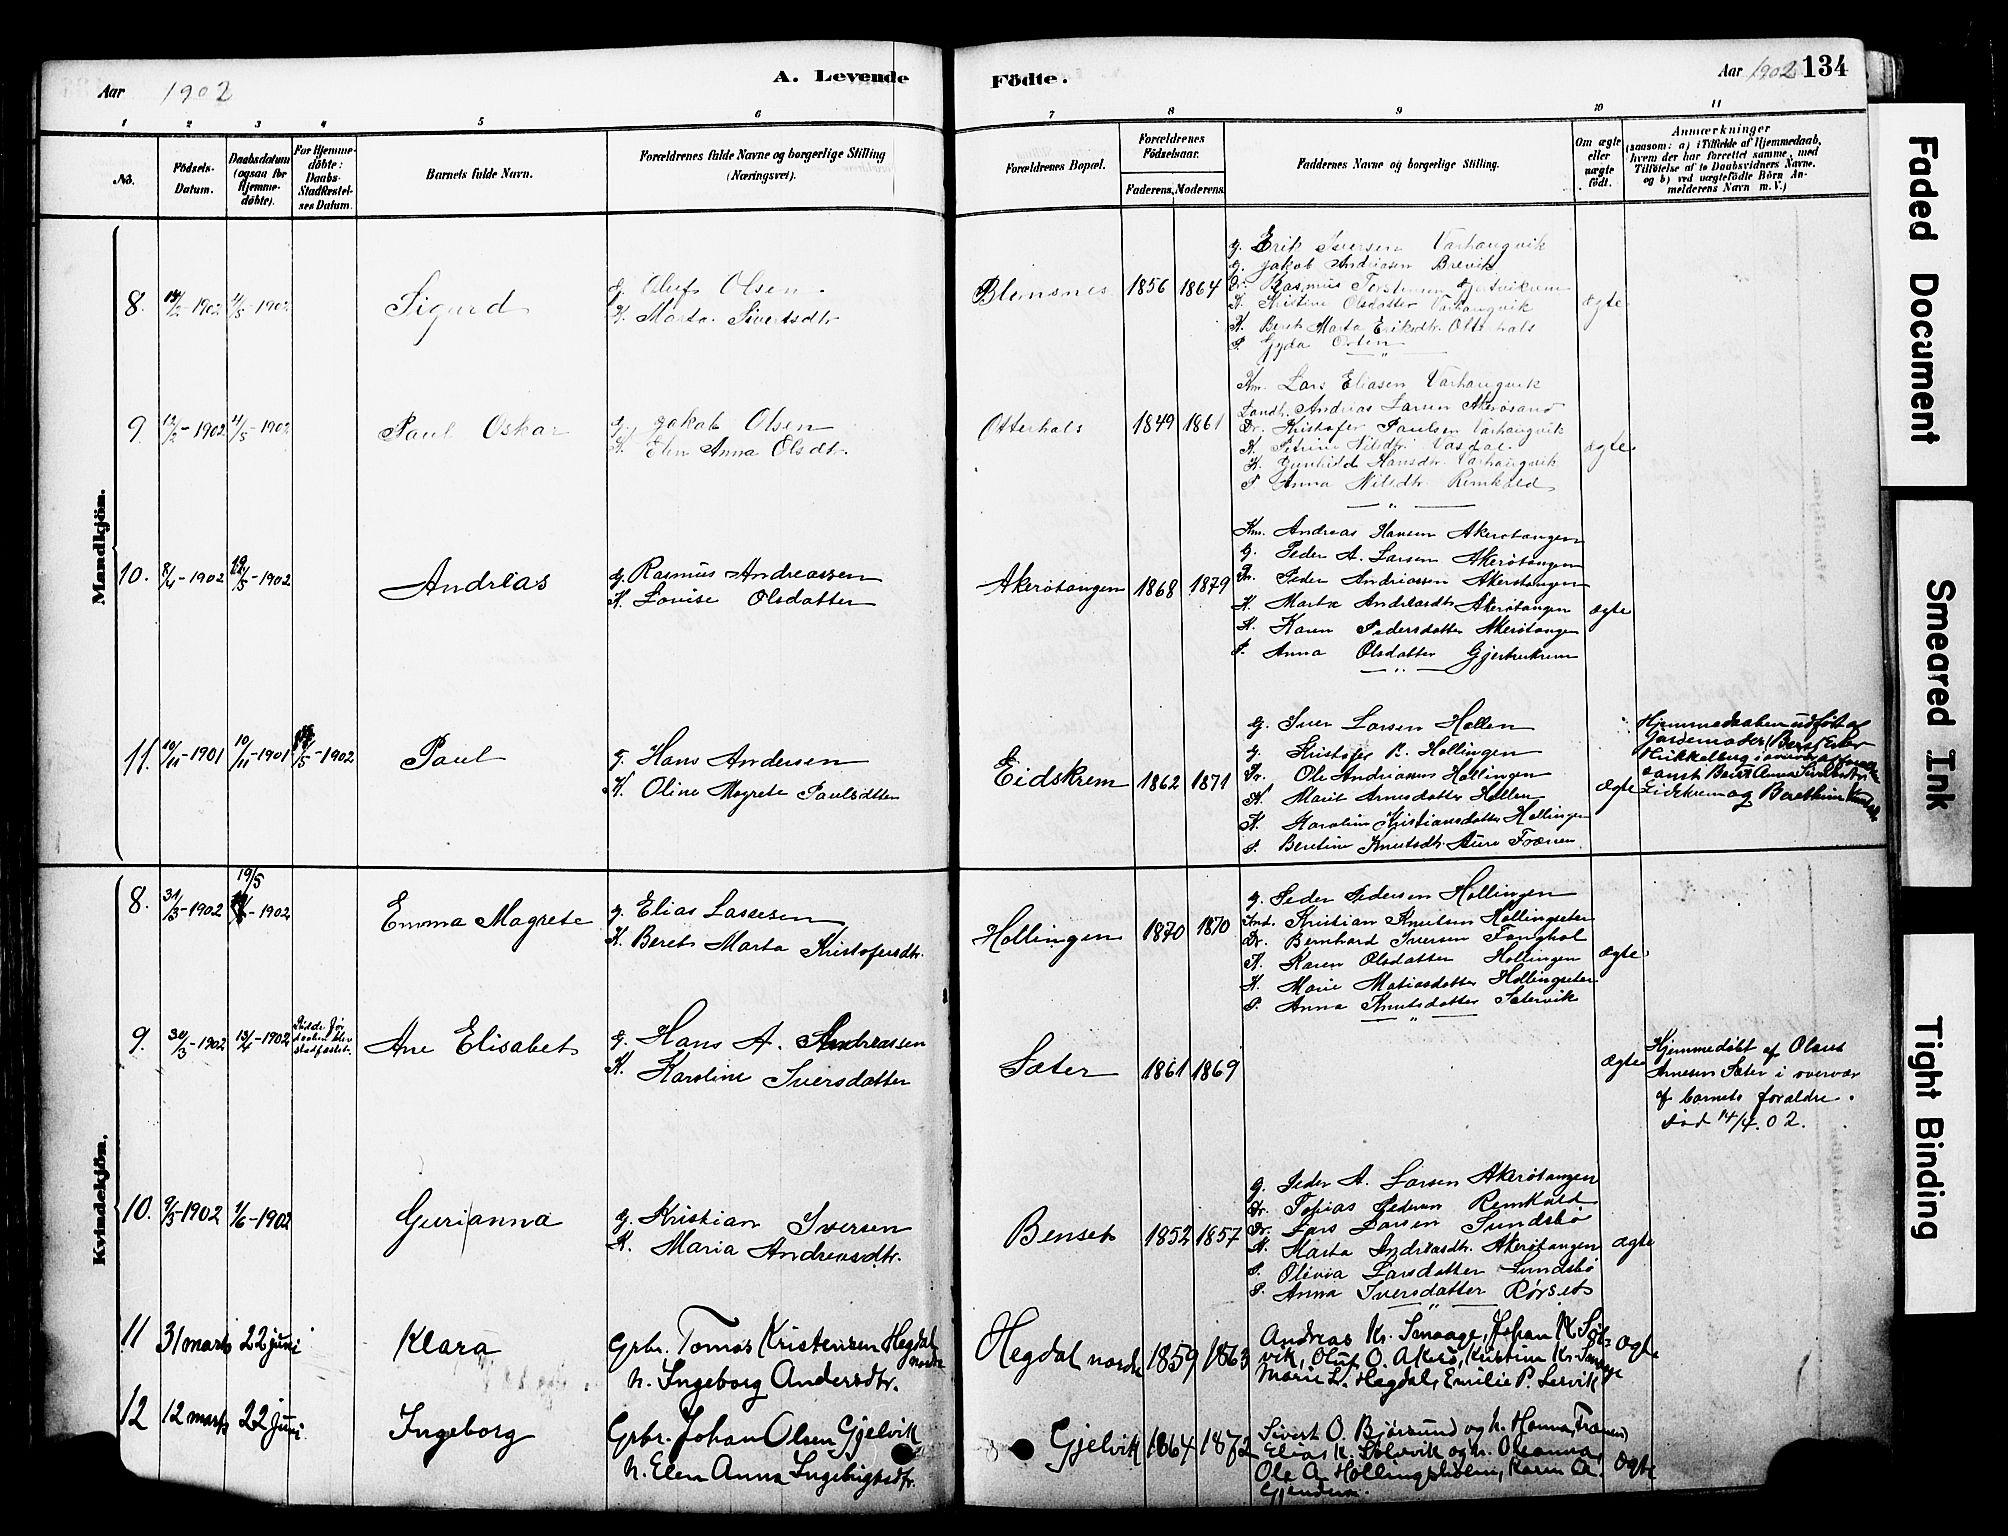 Aar 1902
A. Levende
Födte.
Aar 1902 134
1 2 3 4 5 6 7 8 9 10 11
No.
Födsels-
Datum.
Daabsdatum
(ogsaa for
Hjemme-
döbte).
For Hjemme-
döbte:
Daabs-
Stadfæstel-
ses Datum.
Barnets fulde Navn.
Forældrenes fulde Navne og borgerlige Stilling
(Næringsvei).
Forældrenes Bopæl.
Forældrenes
Födselsaar.
Faderens. Moderens.
Faddernes Navne og borgerlige Stilling.
Om ægte
eller
uægte
födt.
Anmærkninger
(saasom: a) i Tilfælde af Hjemmedaab,
hvem der har forrettet samme, med
Tilföielse af to Daabsvidners Navne.
og b) ved uægtefödte Börn An-
melderens Navn m. V.)
Mandkjön.
8. 1902 1902
Sigurd
g. Oluf Olsen
K. Marta Sivertsdtr
1856 1864
g. Erik Iversen Varhaugvik
g. Jakob Andreasen Brevik
K. Kristine Olsdatter Varhaugvik
K. Beret Marta Eriksdtr. Otterhals
P. Gyda
ægte
9. 12/2-1902 11/5-1902
Paul Oskar
g. Jakob Olsen
K. Elen Anna Olsdtr.
Otterhals 1849 1861
Km. Lars Eliasen Varhaugvik
Landh. Andreas Larsen Akerösand
Dr. Kristofer Paulsen Varhaugvik
K. Gunhild Hansdtr. Varhaugvik
P. Anna Nilsdtr Remkald
ægte
10. 8/4-1902 1902
Andreas
g. Rasmus Andreassen
K. Lovise Olsdatter
Akerötangen 1868 1879
Km. Andreas Hansen Akerötangen
g. Peder A. Larsen Akerötangen
Dr. Peder Andreassen Akerötangen
K. Marta Andreasdtr Akerötangen
K. Karen Pedersdatter Akerötangen
P. Anna Olsdatter
ægte
11. 10/11-1901 10/11-1901 1902
Paul
g. Hans Andersen
K. Oline Magrete Paulsdatter
Eidskrem 1862 1871
g. Iver Larsen Hollen
g. Kristofer P. Hollingen
Dr. Ole Andreasen Hollingen
K. Marit Arnesdatter Hollen
K. Karoline Kristiansdatter Hollingen
P. Beretine Knutsdtr. Aure Frænen
ægte
Hjemmedaaben udført af
Eidskrem og
Kvindekjön.
8. 31/3-1902 19/5 1902
Emma Magrete
g. Elias Lassesen
K. Beret Marta Kristofersdtr.
Hollingen 1870 1870
g. Peder Pedersen Hollingen
Ind. Kristian Knutsen Hollingseter
Dr. Bernhard Iversen Tanghol
K. Karen Olsdatter Hollingen
K. Marie Matiasdatter Hollingseter
P. Anna Knutsdatter Setervik
ægte
9. 30/3-1902 13/4-1902
Döde før
daaben blev
stadfæstet.
Ane Elisabet
g. Hans A. Andreassen
K. Karoline Iversdatter
Sæter 1861 1869
ægte
Hjemmedøbt af Olaus
Arnesen Sæter i overvær
af barnets forældre.
Död 14/4.02.
10. 9/3-1902 1/6-1902
Gurianna
g. Kristian Iversen
K. Maria Andreasdtr.
Benset 1852 1857
g. Peder A. Larsen Akerötangen
Dr. Tobias Pedersen Remkald
Dr. Lars Larsen Sundsbö
K. Marta Andreasdtr. Akerötangen
P. Olivia Larsdatter Sundsbö
P. Anna Iversdatter Rörset
ægte
11 31 marts 22 juni
Klara
Grbr. Tomas Kristensen Hegdal
nordre
h. Ingeborg Andersdtr.
Hegdal nordre 1859 1863
Andreas Kr. Smaage, Johan K. Søl-
vik, Oluf O. Akerø, Kristine Kr. Smaage
Marie L. Hegdal, Emilie P. Larvik
Ægte
12 12 marts 22 juni
Ingeborg
Grbr. Johan Olsen Gjelvik
h. Elen Anna Ingebrigtsdtr.
Gjelvik 1864 1872
Sivert O. Bjørsund og h. Hanna, Fræna
Elias K. Solevik og h. Oleanna,
Ole A. Hollingsholm, Karen A.
Gjendem.
Ægte
Faded Document
Smeared Ink
Tight Binding